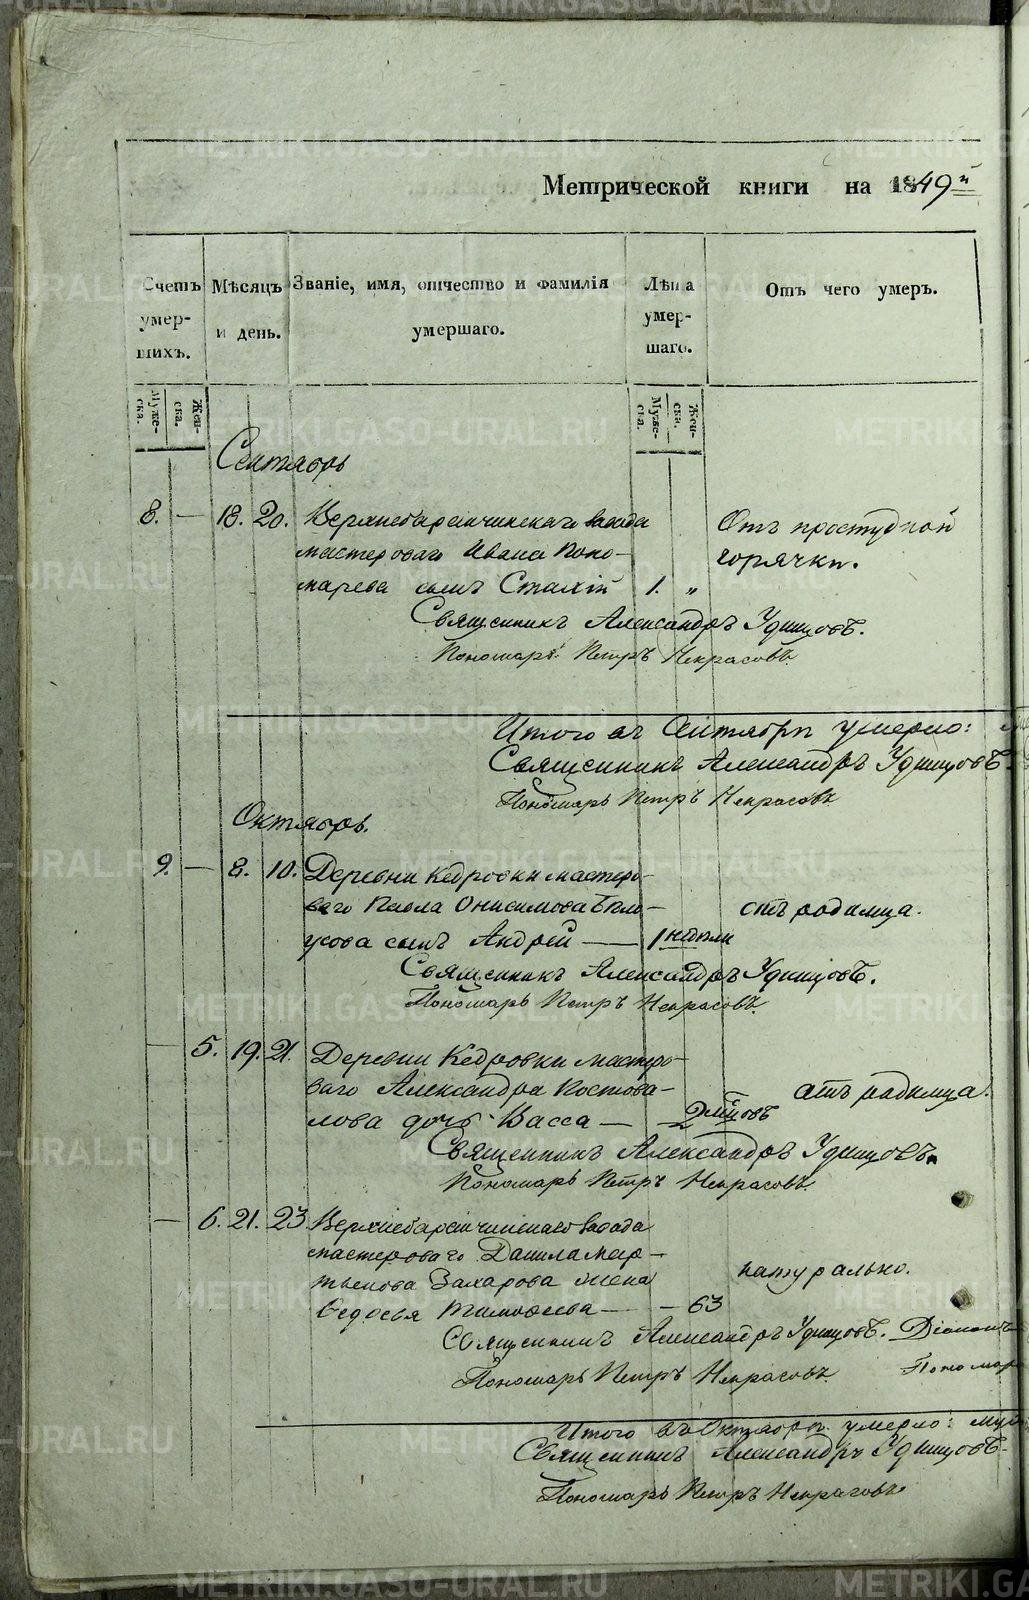 Метрической книги на 1849й
Счетъ умер- шихъ.
Мѣсяцъ и день.
Званіе, имя, отчество и фамилія умершаго.
Лѣта умер- шаго.
Отъ чего умеръ.
Муже- ска.
Жен- ска.
Муже- ска.
Жен- ска.
Сентябрь
8. — 18. 20. Верхнебаранчинскаго завода
мастероваго Ивана Поно-
марева сынъ 1. „
Отъ простудной
горячки.
Священникъ Александръ Удинцовъ.
Пономарь Петръ Некрасовъ.
Итого въ Сентябрѣ умерло:
Священникъ Александръ Удинцовъ.
Пономарь Петръ Некрасовъ
Октябрь.
9. — 8. 10. Деревни Кедровки мастеро-
ваго Павла Онисимова Бѣло-
усова сынъ Андрей — 1 недѣли
отъ родимца.
Священникъ Александръ Удинцовъ.
Пономарь Петръ Некрасовъ.
— 5. 19. 21. Деревни Кедровки мастеро-
ваго Александра Постова-
лова дочь Васса — 2 мцовъ
отъ родимца.
Священникъ Александръ Удинцовъ.
Пономарь Петръ Некрасовъ.
— 6. 21. 23. Верхнебаранчинскаго завода
мастероваго Данила Мар-
тьянова Захарова жена
Ѳедосья Тимоѳеева — — 63
натурально.
Священникъ Александръ Удинцовъ. Діаконъ
Пономарь Петръ Некрасовъ. Пономарь
Итого въ Октябрѣ умерло:
Священникъ Александръ Удинцовъ.
Пономарь Петръ Некрасовъ
METRIKI.GASO-URAL.RU